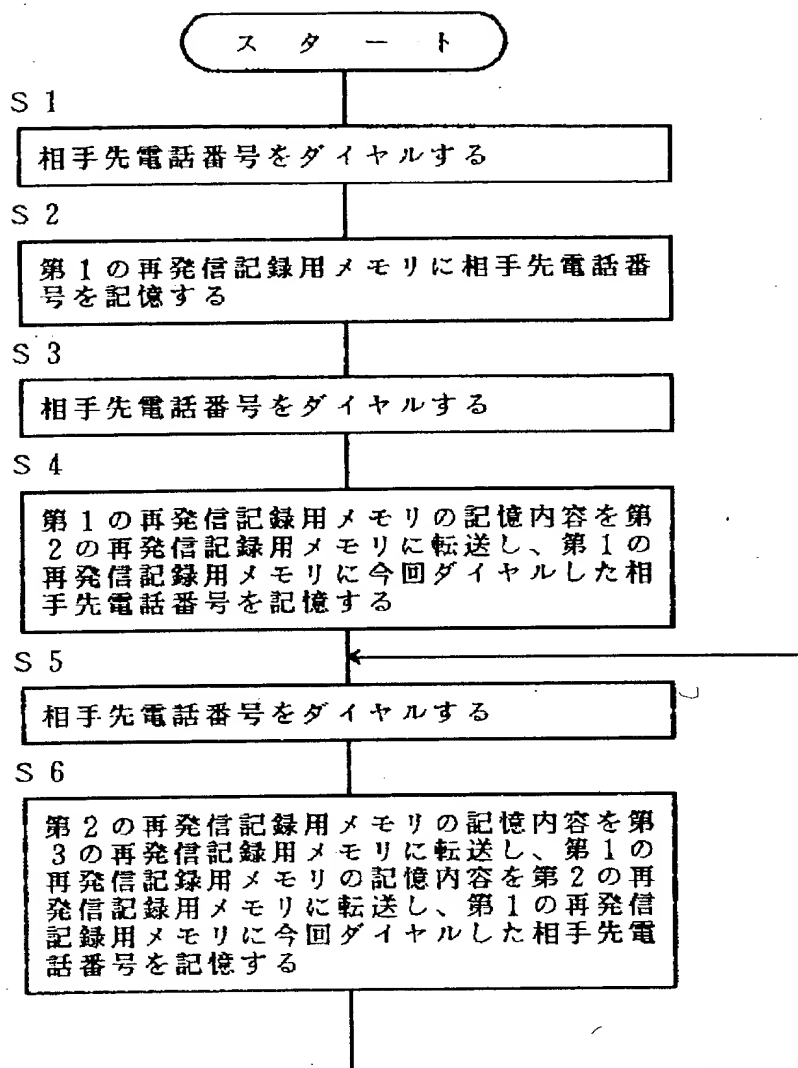 スタート
S1
相手先電話番号をダイヤルする
S2
第1の再発信記録用メモリに相手先電話番
号を記憶する
S3
相手先電話番号をダイヤルする
S4
第1の再発信記録用メモリの記憶内容を第
2の再発信記録用メモリに転送し、第1の
再発信記録用メモリに今回ダイヤルした相
手先電話番号を記憶する
S5
相手先電話番号をダイヤルする
S6
第2の再発信記録用メモリの記憶内容を第
3の再発信記録用メモリに転送し、第1の
再発信記録用メモリの記憶内容を第2の再
発信記録用メモリに転送し、第1の再発信
記録用メモリに今回ダイヤルした相手先電
話番号を記憶する